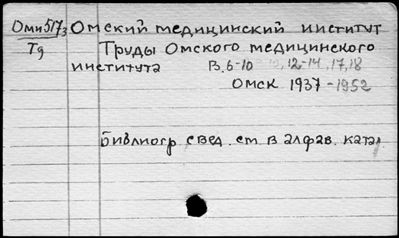 Оми517з Омский медицинский институт
Тд Труды Омского медицинского
института В. 6-10, 12-14, 17, 18
Омск 1937-1952
Библиогр. свед. см. в алфав. катал.